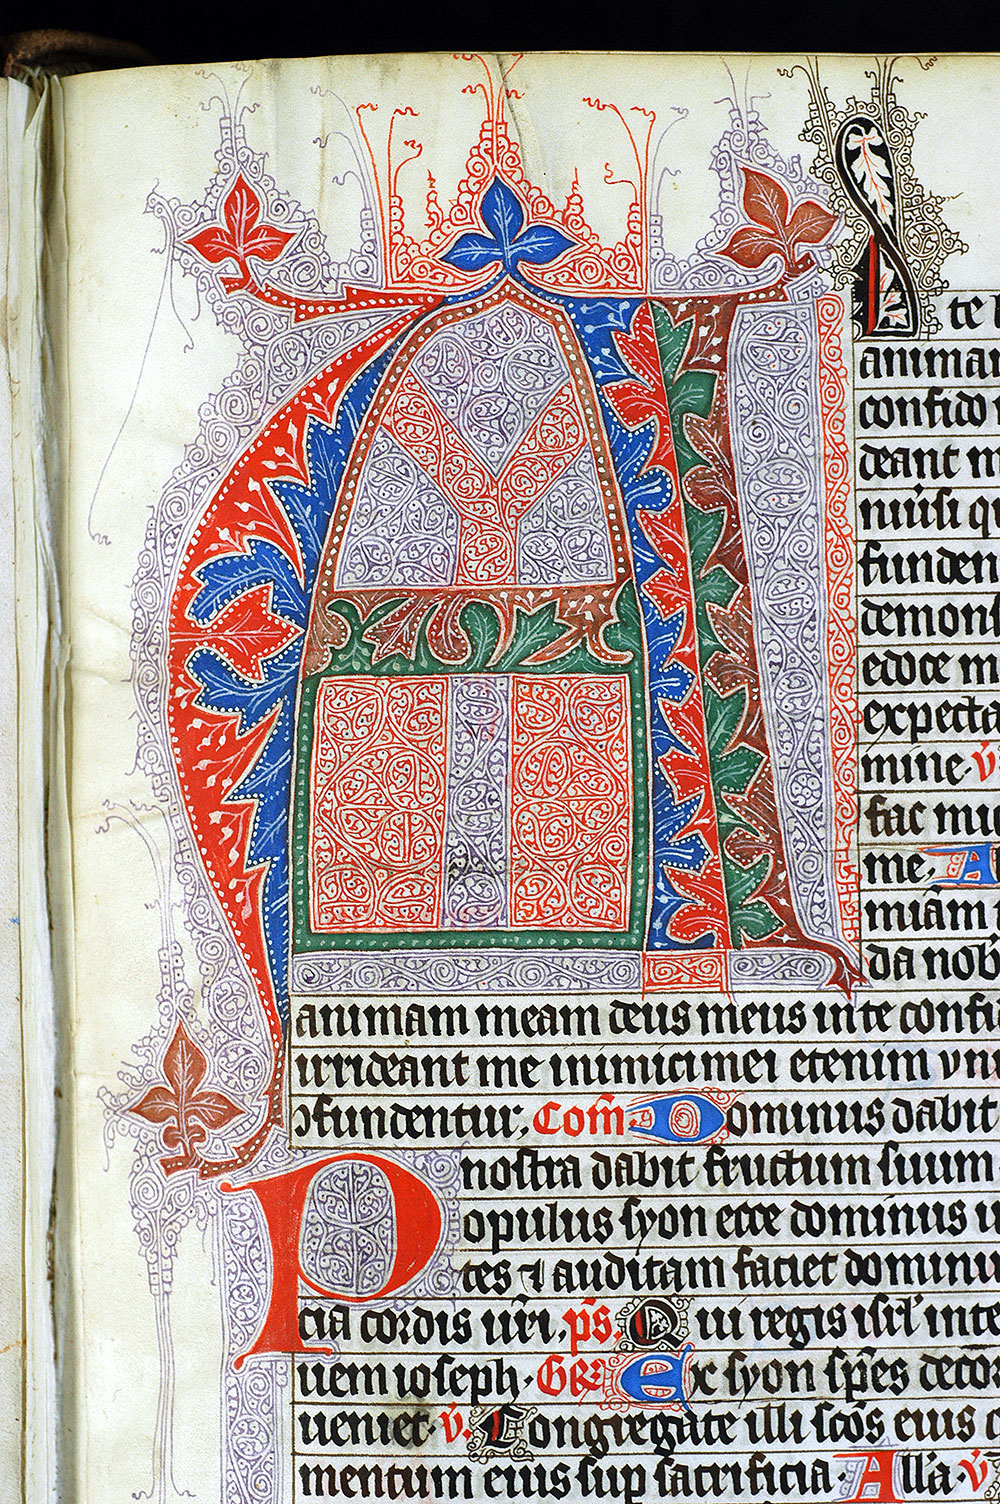 A te
animam
confido
deant m
niūsi qu
funden
demons
edoce m
expecta
mine. v̄
fac mi
me, A
miām
da nob̄
animam meam deus meus in te confi
irrideant me inimici mei etenim vni
ↄfundentur, Com̄ Dominus dabit
nostra dabit fructum suum
Populus syon ecce dominus u
tes ⁊ auditam faciet dominu
cia cordis ur̄i, ps̄, Qui regis isrl̄ inte
uem ioseph. GR̄ Ex syon sp̄es decōr
ueniet. v̄. Congregate illi scōs eius
mentum eius sup sacrificia. All̄a. v̄